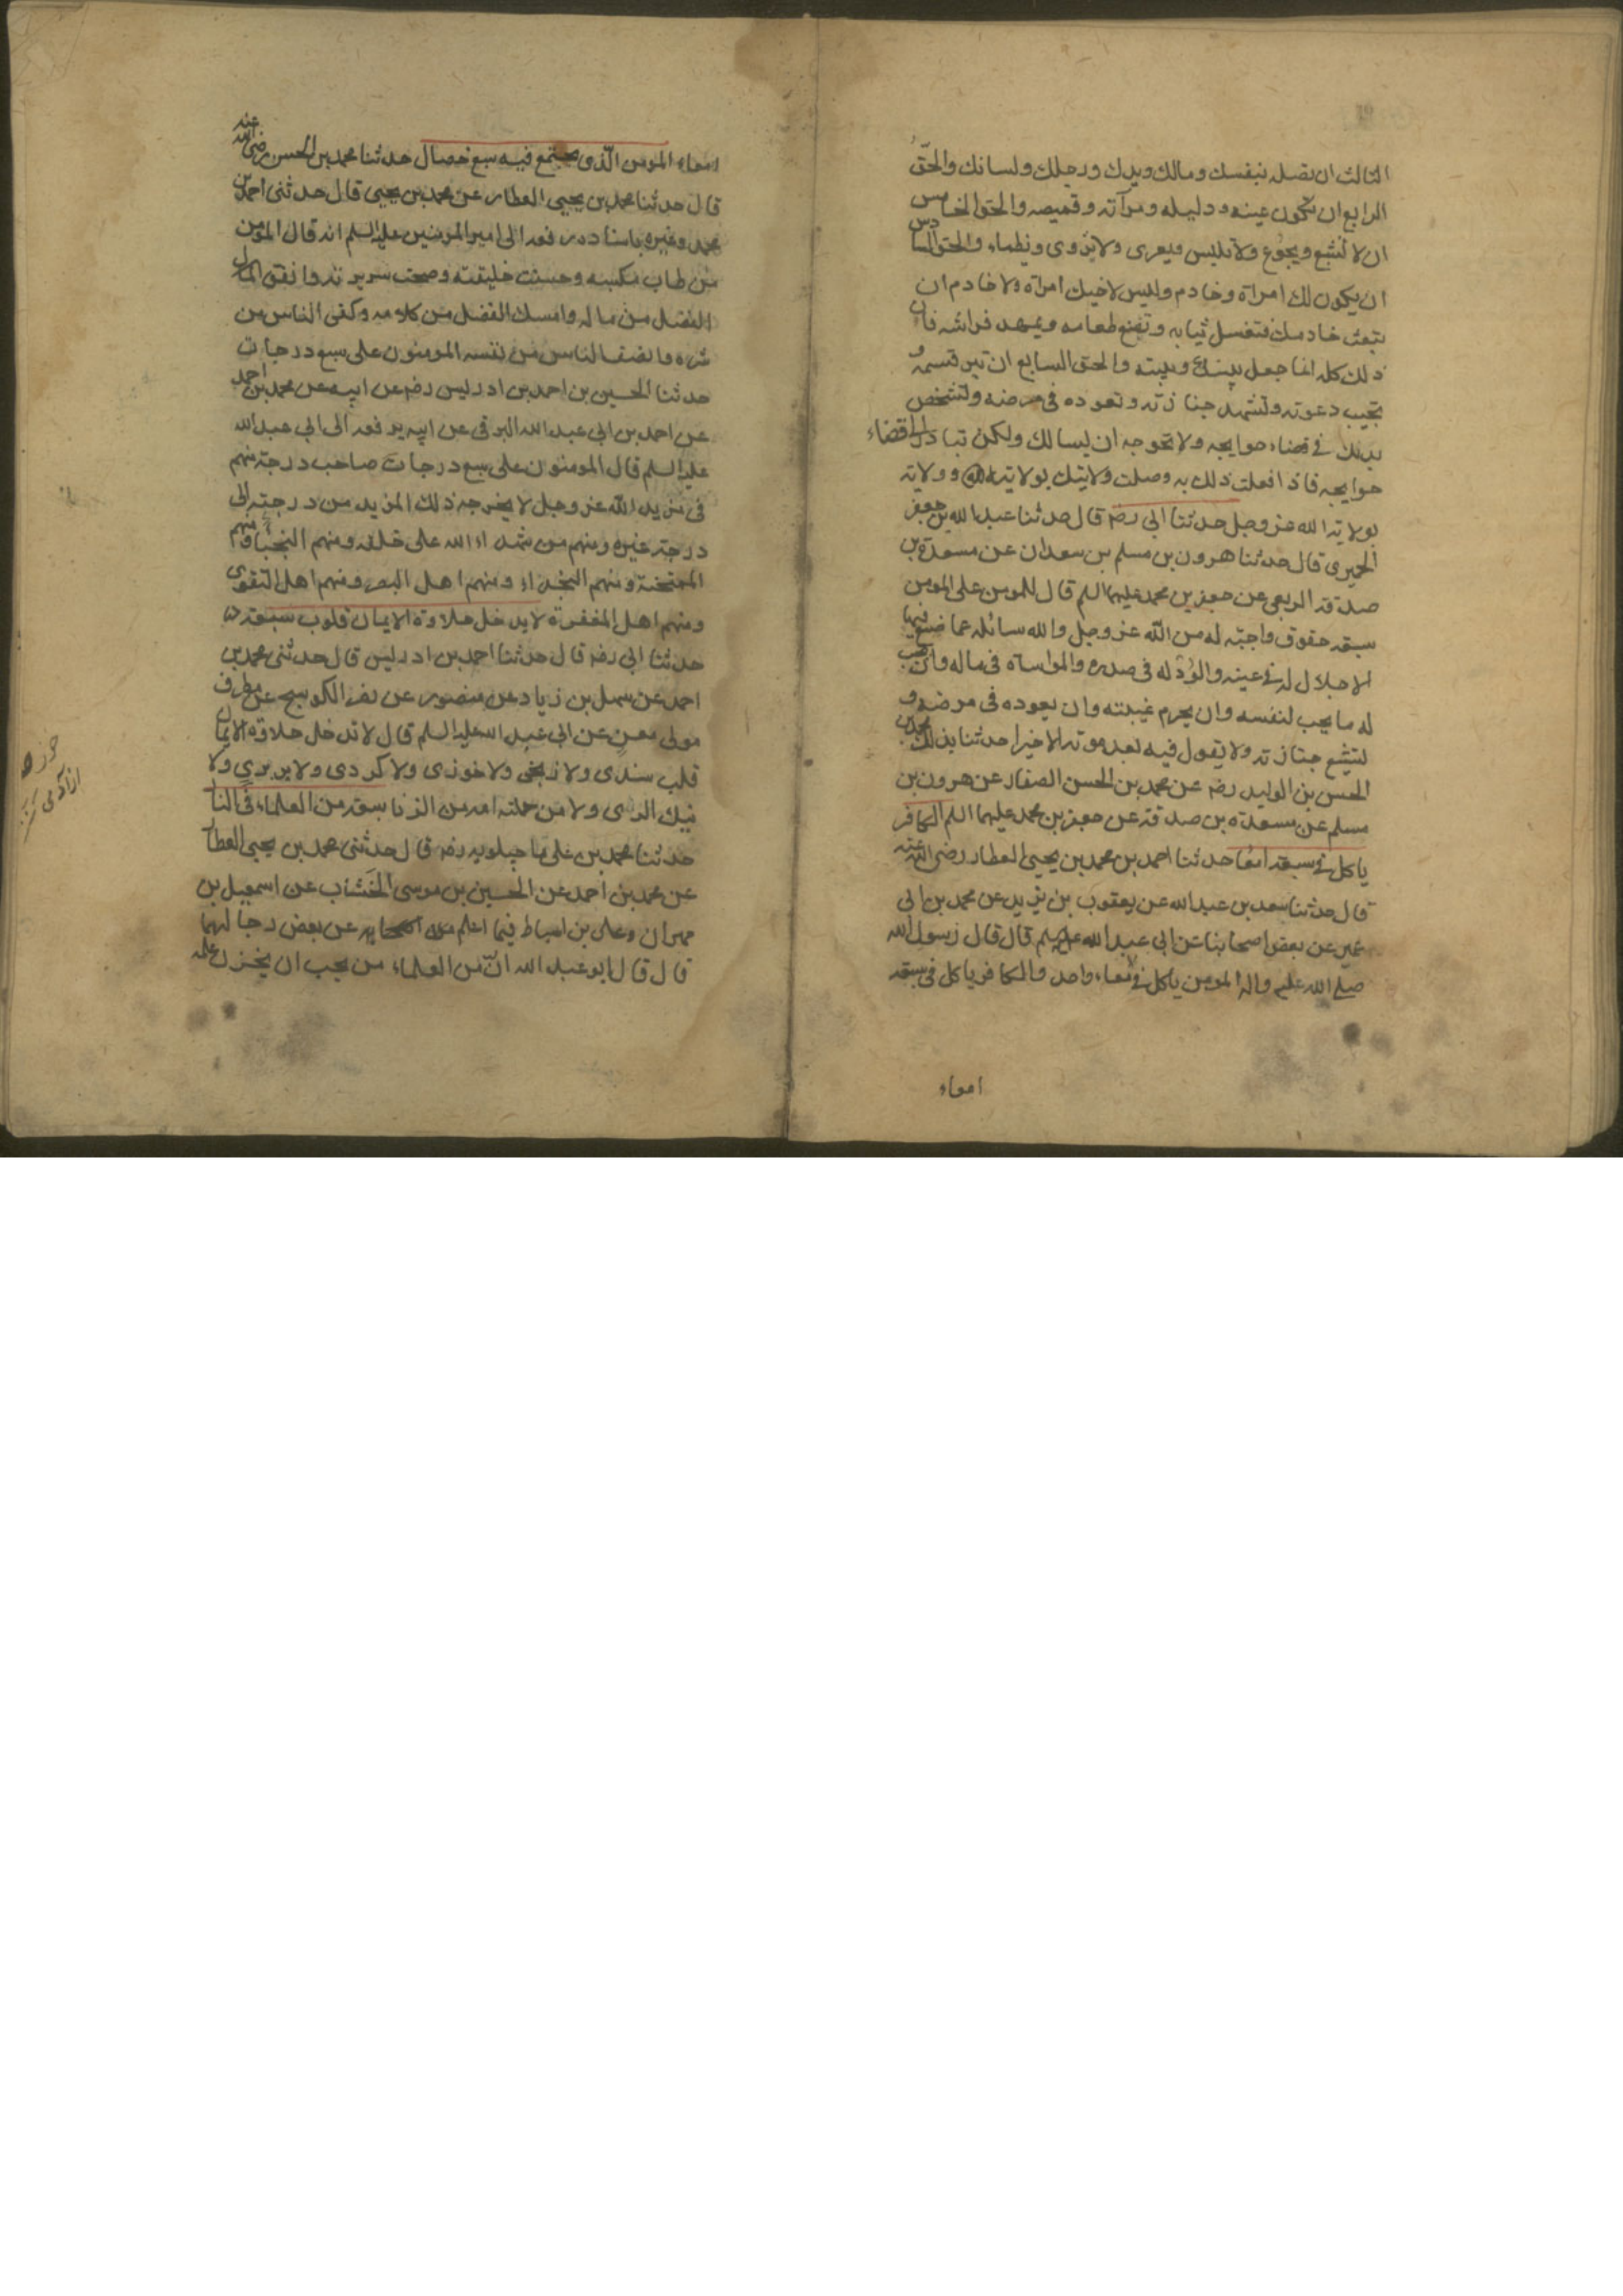 الثالث ان تصله بنفسك ومالك ويدك ورجلك ولسانك والحقّ
الرابع ان تكون عينه ودليله ومرآته وقميصه والحق الخامس
ان لا تشبع ويجوع ولا تلبس ويعرى ولا تروى ويظماء والحق السادس
ان يكون لك امراة وخادم وليس لاخيك امراة ولا خادم ان
تبعث خادمك فتغسل ثيابه وتصنع طعامه ويمهد فراشه فان
ذلك كله انما جعل بينك وبينه والحق السابع ان تبر قسمه و
تجيب دعوته وتشهد جنازته وتعوده فى مرضه وتشخص
بدنك فى قضاء حوايجه ولا تحوجه ان يسالك ولكن تبادر الى قضاء
حوايجه فاذا فعلت ذلك به وصلت ولايتك بولايته وولايته
بولاية الله عز وجل حدثنا ابى رضه قال حدثنا عبد الله بن جعفر
الحميرى قال حدثنا هرون بن مسلم بن سعدان عن مسعدة بن
صدقة الربعى عن جعفر بن محمد عليهما السلم قال للمومن على المومن
سبعة حقوق واجبة له من الله عز وجل والله سائله عما صنع فيها
الاجلال له فى عينه والودّ له فى صدره والمواساة فى ماله وان يحب
له ما يحب لنفسه وان يحرم غيبته وان يعوده فى مرضه و
يشيع جنازته ولا يقول فيه بعد موته الا خيرا حدثنا بذلك محمد بن
الحسن بن الوليد رضه عن محمد بن الحسن الصفار عن هرون بن
مسلم عن مسعدة بن صدقة عن جعفر بن محمد عليهما السلم الكافر
ياكل فى سبعة امعا حدثنا احمد بن محمد بن يحيى العطار رضى الله عنه
قال حدثنا سعد بن عبد الله عن يعقوب بن يزيد عن محمد بن ابى
عمير عن بعض اصحابنا عن ابى عبد الله عليه السلم قال قال رسول الله
صلى الله عليه واله المومن ياكل فى معاء واحد والكافر ياكل فى سبعة
امعاء
امعاء المومن الّذى يجتمع فيه سبع خصال حدثنا محمد بن الحسن رضى الله عنه
قال حدثنا محمد بن يحيى العطار عن محمد بن يحيى قال حدثنى احمد بن
محمد وغيره باسناده رفعه الى امير المومنين عليه السلم انه قال المومن
من طاب مكسبه وحسنت خليقته وصحت سريرته وانفق
الفضل من ماله وامسك الفضل من كلامه وكفى الناس من
شره وانصف الناس من نفسه المومنون على سبع درجات
حدثنا الحسين بن احمد بن ادريس رضه عن ابيه عن محمد بن احمد
عن احمد بن ابى عبد الله البرقى عن ابيه يرفعه الى ابى عبد الله
عليه السلم قال المومنون على سبع درجات صاحب درجة منهم
فى مزيد الله عز وجل لا يخرجه ذلك المزيد من درجته الى
درجة غيره ومنهم من شهداء الله على خلقه ومنهم النجباء ومنهم
الممتحنة ومنهم النجداء ومنهم اهل الصبر ومنهم اهل التقوى
ومنهم اهل المغفرة لا يدخل حلاوة الايمان قلوب سبعة
حدثنا ابى رضه قال حدثنا احمد بن ادريس قال حدثنى محمد بن
احمد عن سهل بن زياد عن منصور عن نصر الكوسج عن مطرف
مولى معن عن ابى عبد الله عليه السلم قال لا تدخل حلاوة الايمان
قلب سندى ولا زنجى ولا خوزى ولا كردى ولا بربرى ولا
نبك الرى ولا من حملته امه من الزنا سبعة من العلماء فى النار
حدثنا محمد بن على ماجيلويه رضه قال حدثنى محمد بن يحيى العطار
عن محمد بن احمد عن الحسين بن موسى الخشاب عن اسمعيل بن
مهران وعلى بن اسباط فيما اعلم عن بعض رجالهما
قال قال ابو عبد الله انّ من العلماء من يحب ان يخزن علمه